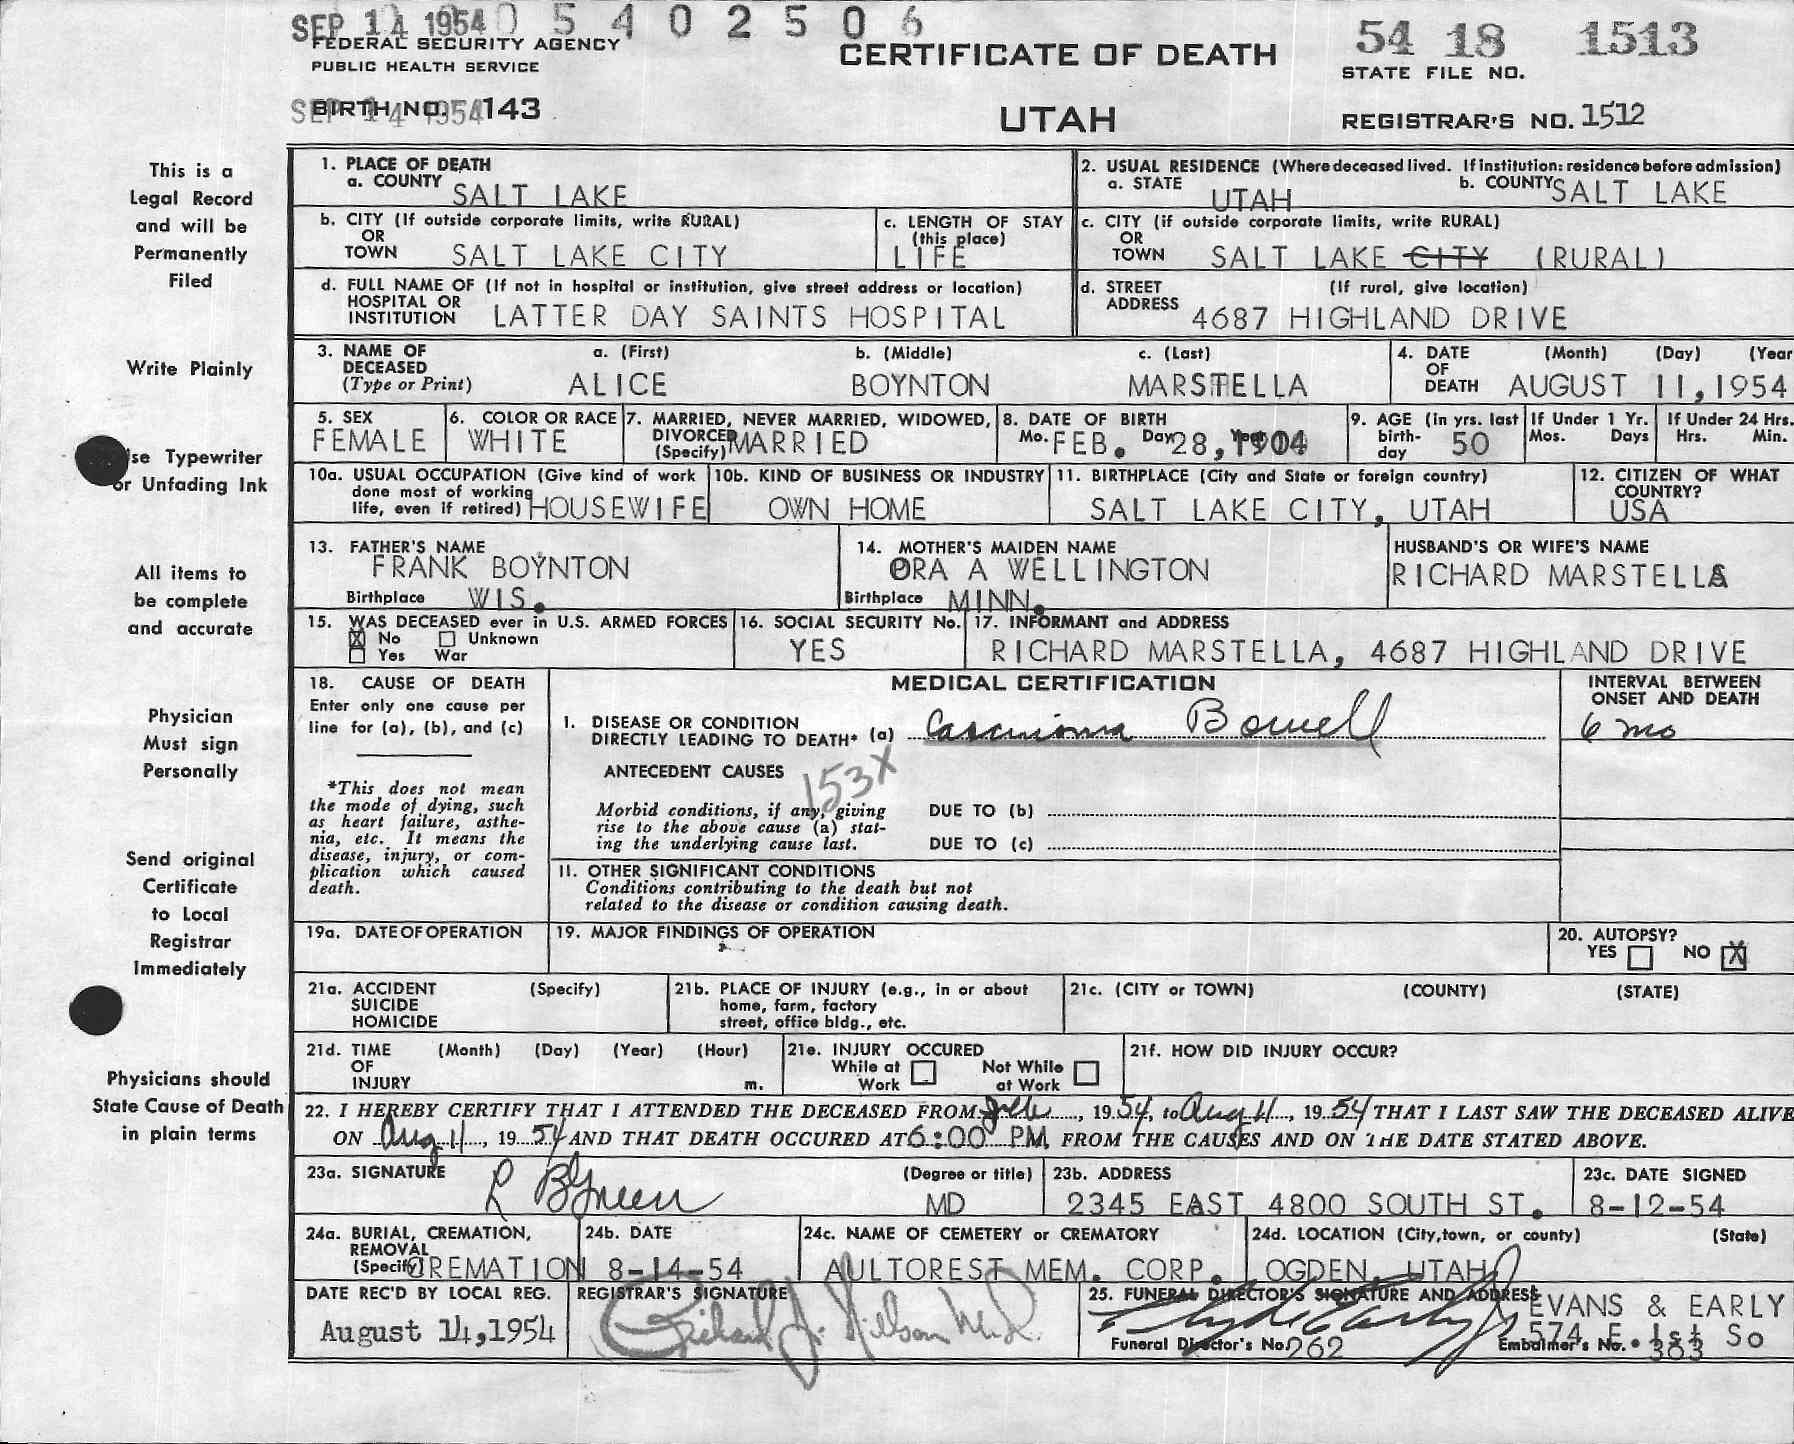 SEP 14 1954 0 5 4 0 2 5 0 6
FEDERAL SECURITY AGENCY
PUBLIC HEALTH SERVICE
CERTIFICATE OF DEATH
54 18 1513
STATE FILE NO.
SEP 14 1954
BIRTH NO. 143
UTAH
REGISTRAR'S NO. 1512
This is a
Legal Record
and will be
Permanently
Filed
Write Plainly
se Typewriter
or Unfading Ink
All items to
be complete
and accurate
Physician
Must sign
Personally
Send original
Certificate
to Local
Registrar
Immediately
Physicians should
State Cause of Death
in plain terms
1. PLACE OF DEATH
a. COUNTY SALT LAKE
2. USUAL RESIDENCE (Where deceased lived. If institution: residence before admission)
a. STATE UTAH b. COUNTY SALT LAKE
b. CITY (If outside corporate limits, write RURAL)
OR
TOWN SALT LAKE CITY
c. LENGTH OF STAY
(this place)
LIFE
c. CITY (if outside corporate limits, write RURAL)
OR
TOWN SALT LAKE CITY (RURAL)
d. FULL NAME OF (If not in hospital or institution, give street address or location)
HOSPITAL OR
INSTITUTION LATTER DAY SAINTS HOSPITAL
d. STREET (If rural, give location)
ADDRESS 4687 HIGHLAND DRIVE
3. NAME OF a. (First) b. (Middle) c. (Last)
DECEASED
(Type or Print) ALICE BOYNTON MARSTELLA
4. DATE (Month) (Day) (Year
OF
DEATH AUGUST 11, 1954
5. SEX
FEMALE
6. COLOR OR RACE
WHITE
7. MARRIED, NEVER MARRIED, WIDOWED,
DIVORCED
(Specify) MARRIED
8. DATE OF BIRTH
Mo. FEB. Day 28, Year 1904
9. AGE (in yrs. last
birth-
day 50
If Under 1 Yr.
Mos. Days
If Under 24 Hrs.
Hrs. Min.
10a. USUAL OCCUPATION (Give kind of work
done most of working
life, even if retired) HOUSEWIFE
10b. KIND OF BUSINESS OR INDUSTRY
OWN HOME
11. BIRTHPLACE (City and State or foreign country)
SALT LAKE CITY, UTAH
12. CITIZEN OF WHAT
COUNTRY?
USA
13. FATHER'S NAME
FRANK BOYNTON
Birthplace WIS.
14. MOTHER'S MAIDEN NAME
ORA A WELLINGTON
Birthplace MINN.
HUSBAND'S OR WIFE'S NAME
RICHARD MARSTELLA
15. WAS DECEASED ever in U.S. ARMED FORCES
X No Unknown
Yes War
16. SOCIAL SECURITY No.
YES
17. INFORMANT and ADDRESS
RICHARD MARSTELLA, 4687 HIGHLAND DRIVE
18. CAUSE OF DEATH
Enter only one cause per
line for (a), (b), and (c)
*This does not mean
the mode of dying, such
as heart failure, asthe-
nia, etc. It means the
disease, injury, or com-
plication which caused
death.
MEDICAL CERTIFICATION
INTERVAL BETWEEN
ONSET AND DEATH
I. DISEASE OR CONDITION
DIRECTLY LEADING TO DEATH* (a) Carcinoma Bowell
6 mo
ANTECEDENT CAUSES
153X
Morbid conditions, if any, giving
rise to the above cause (a) stat-
ing the underlying cause last.
DUE TO (b)
DUE TO (c)
II. OTHER SIGNIFICANT CONDITIONS
Conditions contributing to the death but not
related to the disease or condition causing death.
19a. DATE OF OPERATION
19. MAJOR FINDINGS OF OPERATION
20. AUTOPSY?
YES NO X
21a. ACCIDENT (Specify)
SUICIDE
HOMICIDE
21b. PLACE OF INJURY (e.g., in or about
home, farm, factory
street, office bldg., etc.
21c. (CITY or TOWN) (COUNTY) (STATE)
21d. TIME (Month) (Day) (Year) (Hour)
OF
INJURY m.
21e. INJURY OCCURED
While at Not While
Work at Work
21f. HOW DID INJURY OCCUR?
22. I HEREBY CERTIFY THAT I ATTENDED THE DECEASED FROM, 1954, to Aug 11, 1954 THAT I LAST SAW THE DECEASED ALIVE
ON Aug 11, 1954 AND THAT DEATH OCCURED AT 6:00 PM, FROM THE CAUSES AND ON THE DATE STATED ABOVE.
23a. SIGNATURE (Degree or title)
R B Green MD
23b. ADDRESS
2345 EAST 4800 SOUTH ST.
23c. DATE SIGNED
8-12-54
24a. BURIAL, CREMATION,
REMOVAL
(Specify) CREMATION
24b. DATE
8-14-54
24c. NAME OF CEMETERY or CREMATORY
AULTOREST MEM. CORP.
24d. LOCATION (City, town, or county) (State)
OGDEN, UTAH
DATE REC'D BY LOCAL REG.
August 14, 1954
REGISTRAR'S SIGNATURE
Richard J. Nilson M.D.
25. FUNERAL DIRECTOR'S SIGNATURE AND ADDRESS
EVANS & EARLY
574 E. 1st So
Funeral Director's No. 262
Embalmer's No. 383